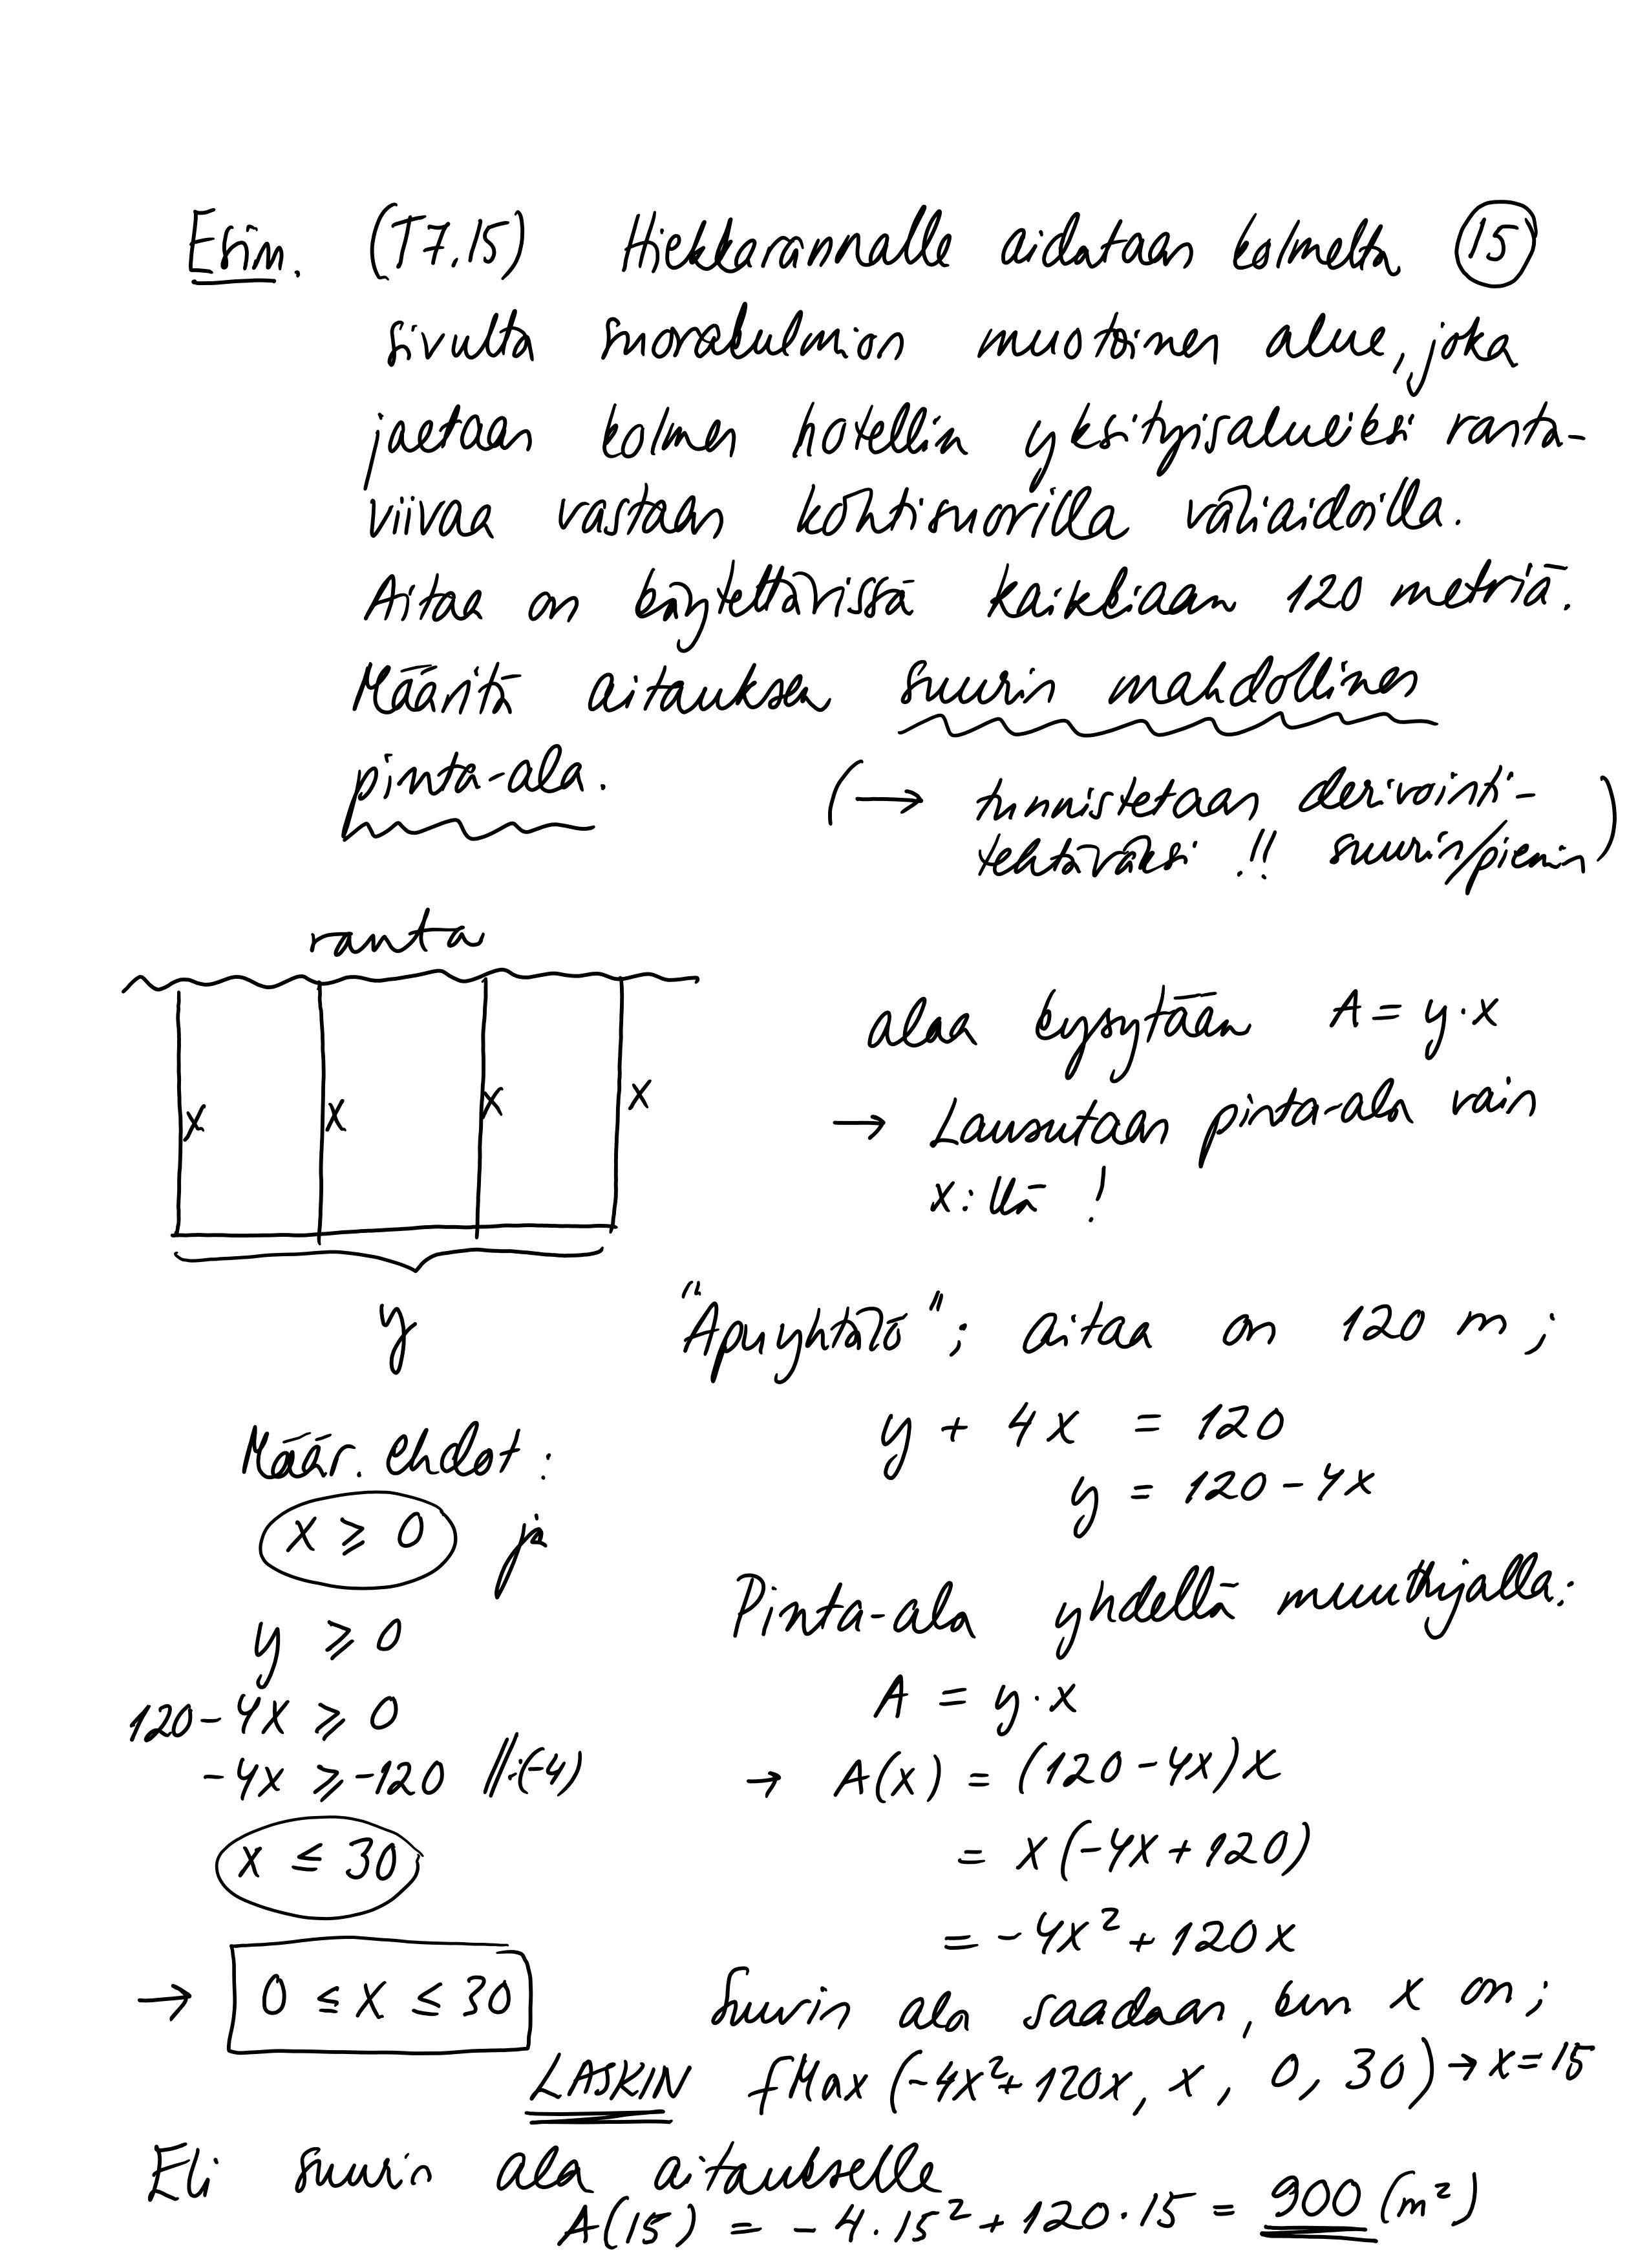 Esim. (T7.15) Hiekkarannalle aidataan kolmelta 15
sivulta suorakulmion muotoinen alue, joka
jaetaan kolmen hotellin yksityisalueiksi ranta-
viivaa vastaan kohtisuorilla väliaidoilla.
Aitaa on käytettävissä kaikkiaan 120 metriä.
Määritä aitauksen suurin mahdollinen
pinta-ala.
(→ tunnistetaan derivointi-
tehtäväksi !! suurin/pienin)
ranta
x x x x
y
alaa kysytään A = y·x
→ Lausutaan pinta-ala vain
x:llä !
"Apuyhtälö"; aitaa on 120 m;
y + 4x = 120
y = 120 - 4x
Määr. ehdot:
x ≥ 0 ja
y ≥ 0
120 - 4x ≥ 0
-4x ≥ -120 ||:(-4)
x ≤ 30
→ 0 ≤ x ≤ 30
Pinta-ala yhdellä muuttujalla:
A = y·x
→ A(x) = (120 - 4x)x
= x(-4x + 120)
= -4x² + 120x
Suurin ala saadaan, kun x on;
LASKIN fMax(-4x²+120x, x, 0, 30) → x = 15
Eli suurin ala aitaukselle
A(15) = -4·15² + 120·15 = 900 (m²)